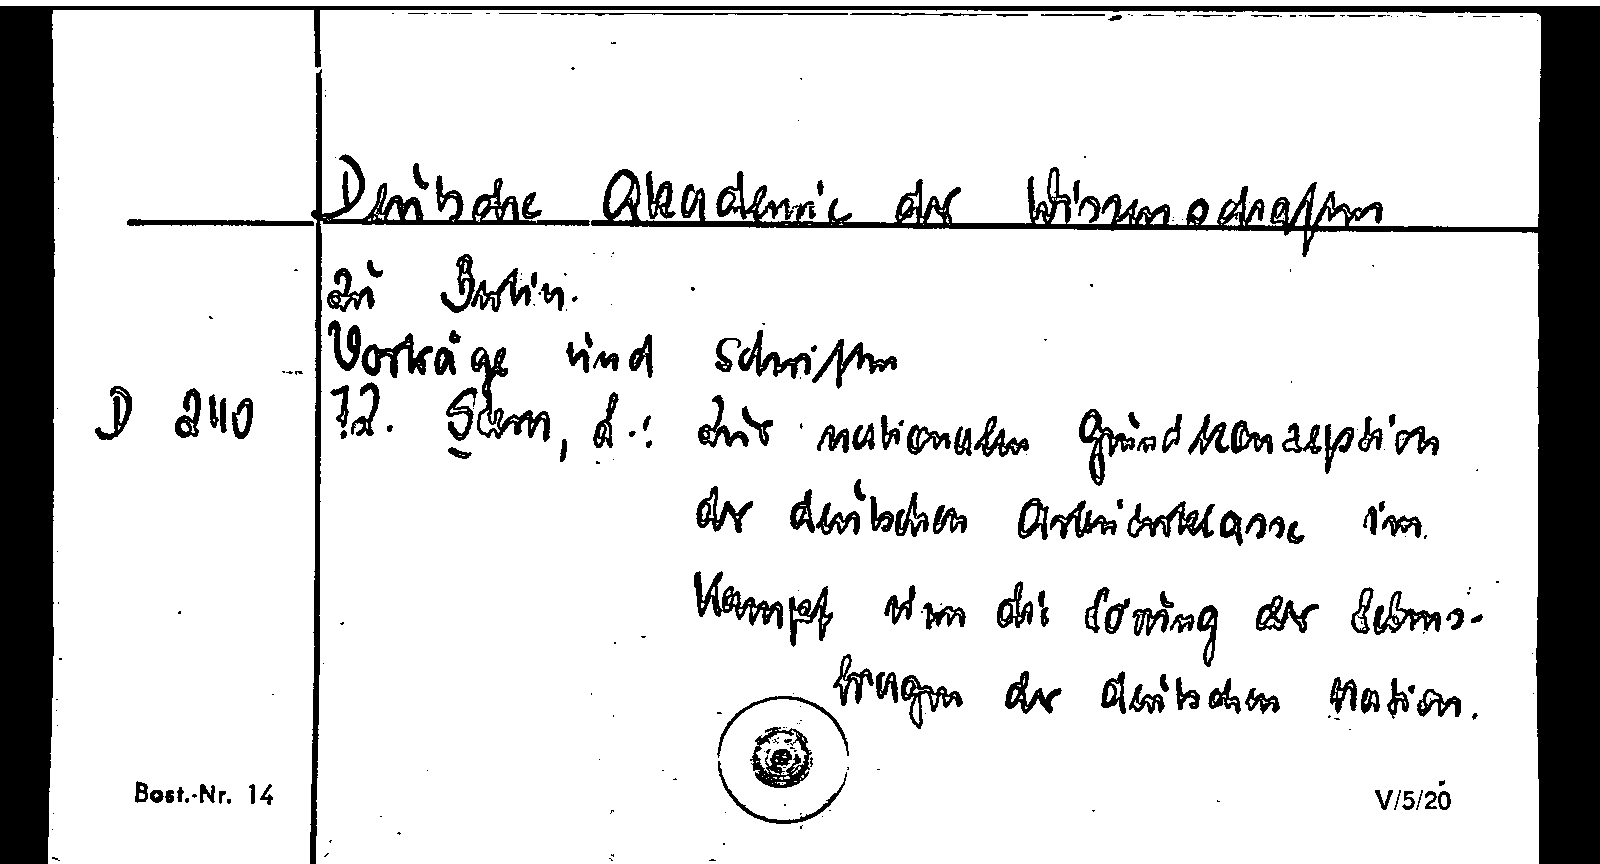 Deutsche Akademie der Wissenschaften
zu Berlin.
Vorträge und Schriften
D 240 72. Stern, L.: Zur nationalen Grundkonzeption
der deutschen Arbeiterklasse im
Kampf um die Lösung der Lebens-
fragen der deutschen Nation.
Best.-Nr. 14 V/5/20